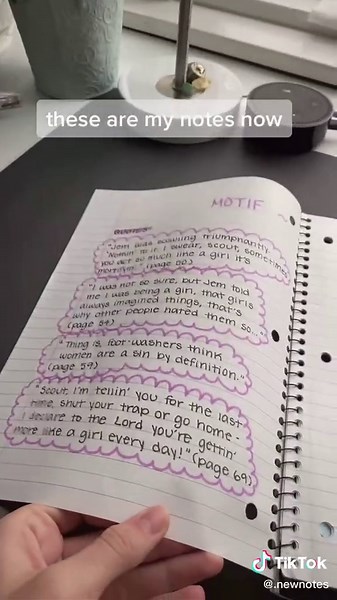 these are my notes now
MOTIF
QUOTES:
"Jem was scowling triumphantly.
'Nothin' to it. I swear, Scout, sometimes
you act so much like a girl it's
mortifyin'." (page 50)
"I was not so sure, but Jem told
me I was being a girl, that girls
always imagined things, that's
why other people hated them so..."
(page 54)
"Thing is, foot-washers think
women are a sin by definition."
(page 59)
"Scout, I'm tellin' you for the last
time, shut your trap or go home-
I declare to the Lord you're gettin'
more like a girl every day!" (page 69)
TikTok
@.newnotes